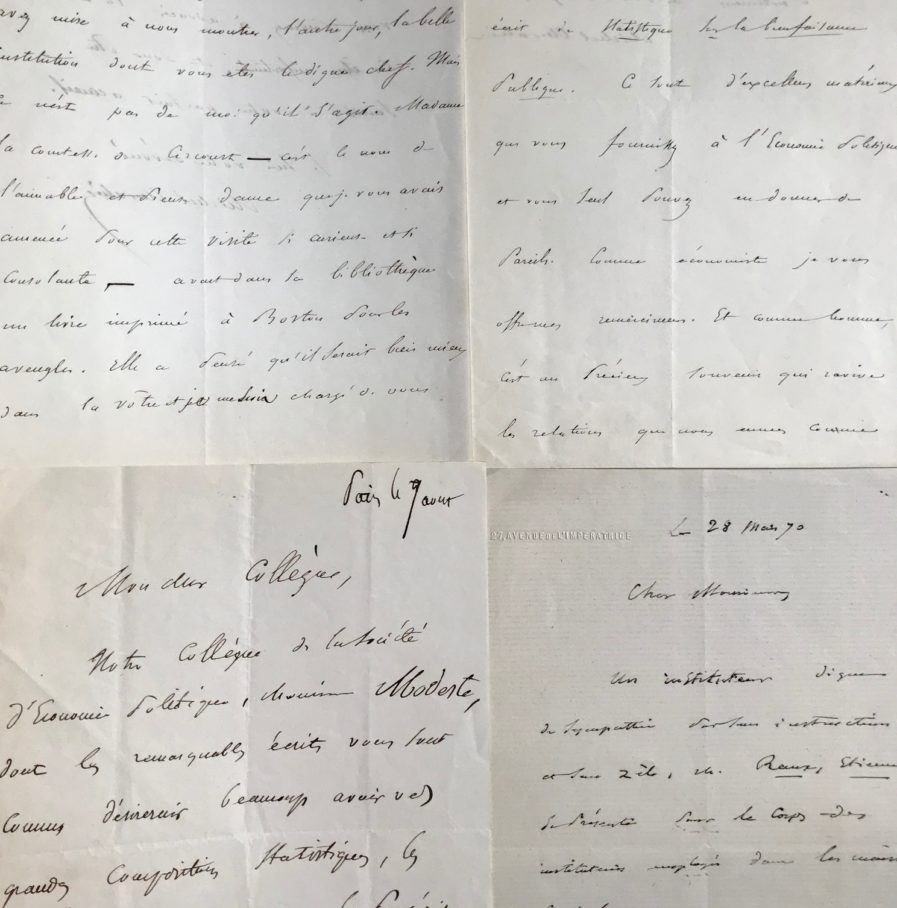 avez mise à nous montrer, l'autre jour, la belle
institution dont vous etes le digne chef. Mais
ce n'est pas de moi qu'il s'agit. Madame
la comtesse de Circourt — c'est le nom de
l'aimable et pieuse dame que je vous avais
amenée pour cette visite si curieuse et si
consolante, — avait dans sa bibliothèque
un livre imprimé à Boston pour les
aveugles. Elle a pensé qu'il serait bien mieux
dans la votre et je me suis chargé de vous
écrit de Statistique sur la bienfaisance
Publique. Ce sont d'excellens matériaux
que vous fournissez à l'Economie Politique
et vous seul pouvez en donner de
pareils. Comme économiste je vous
offre mes remerciemens. Et comme homme,
c'est un précieux souvenir qui ravive
les relations que nous eumes comme
Paris le 9 aout
Mon cher Collègue,
Notre Collègue de la Société
d'Economie Politique, Monsieur Modeste,
dont les remarquables écrits vous sont
connus désirerait beaucoup avoir
grandes Compositions Statistiques, les
27, AVENUE DE L'IMPÉRATRICE
Le 28 Mars 70
Cher Monsieur
Un instituteur digne
de sympathie par son instruction
et son zèle, M. Raux, Etienne
se présente pour le Corps des
instituteurs employés dans les